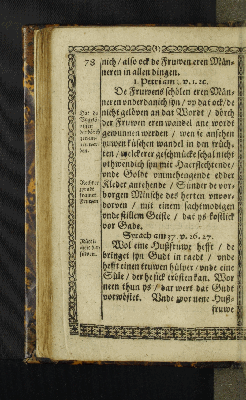 78
nich / also ock de Fruwen eren Män-
neren in allen dingen.
1. Petri am 3. v. 1. 2c.
De Fruwens schölen eren Män-
neren underdanich syn / up dat ock / de
nicht gelöven an dat Wordt / dörch
der Fruwen eren wandel ane wordt
gewunnen werden / wen se anschen
juwen küschen wandel in den früch-
ten / welckerer geschmücke schal nicht
uthwendich syn mit Haerflechtende /
unde Goldt ummehengende edder
Kleder antehende / Sünder de vor-
borgen Minsche des herten unvor-
dorven / mit einem sachtmödigen
unde stillem Geiste / dat ys köstlick
vor Gade.
Syrach am 37. v. 26. 27.
Wol eine Hußfruwe hefft / de
bringet syn Gudt in raedt / unde
hefft einen truwen hülper / unde eine
Süle / der he sick trösten kan. Wor
neen thun ys / dar wert dat Gudt
vorwöstet. Unde wor nene Huß-
fruwe